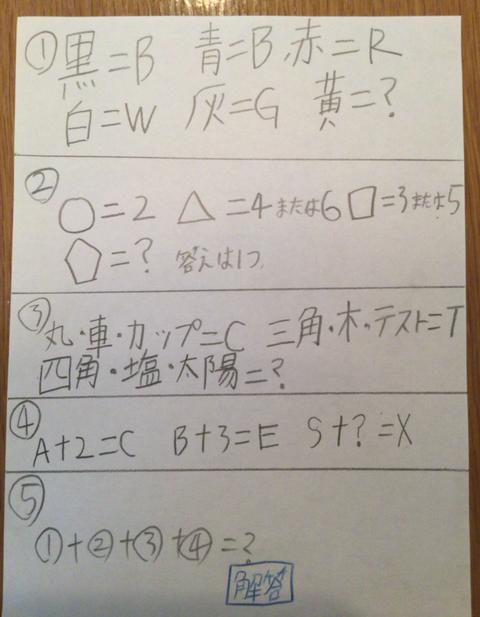 ① 黒=B 青=B 赤=R
白=W 灰=G 黄=?
② ○=2 △=4または6 □=3または5
⬠=? 答えは1つ
③ 丸・車・カップ=C 三角・木・テスト=T
四角・塩・太陽=?
④ A+2=C B+3=E S+?=X
⑤
①+②+③+④=?
解答